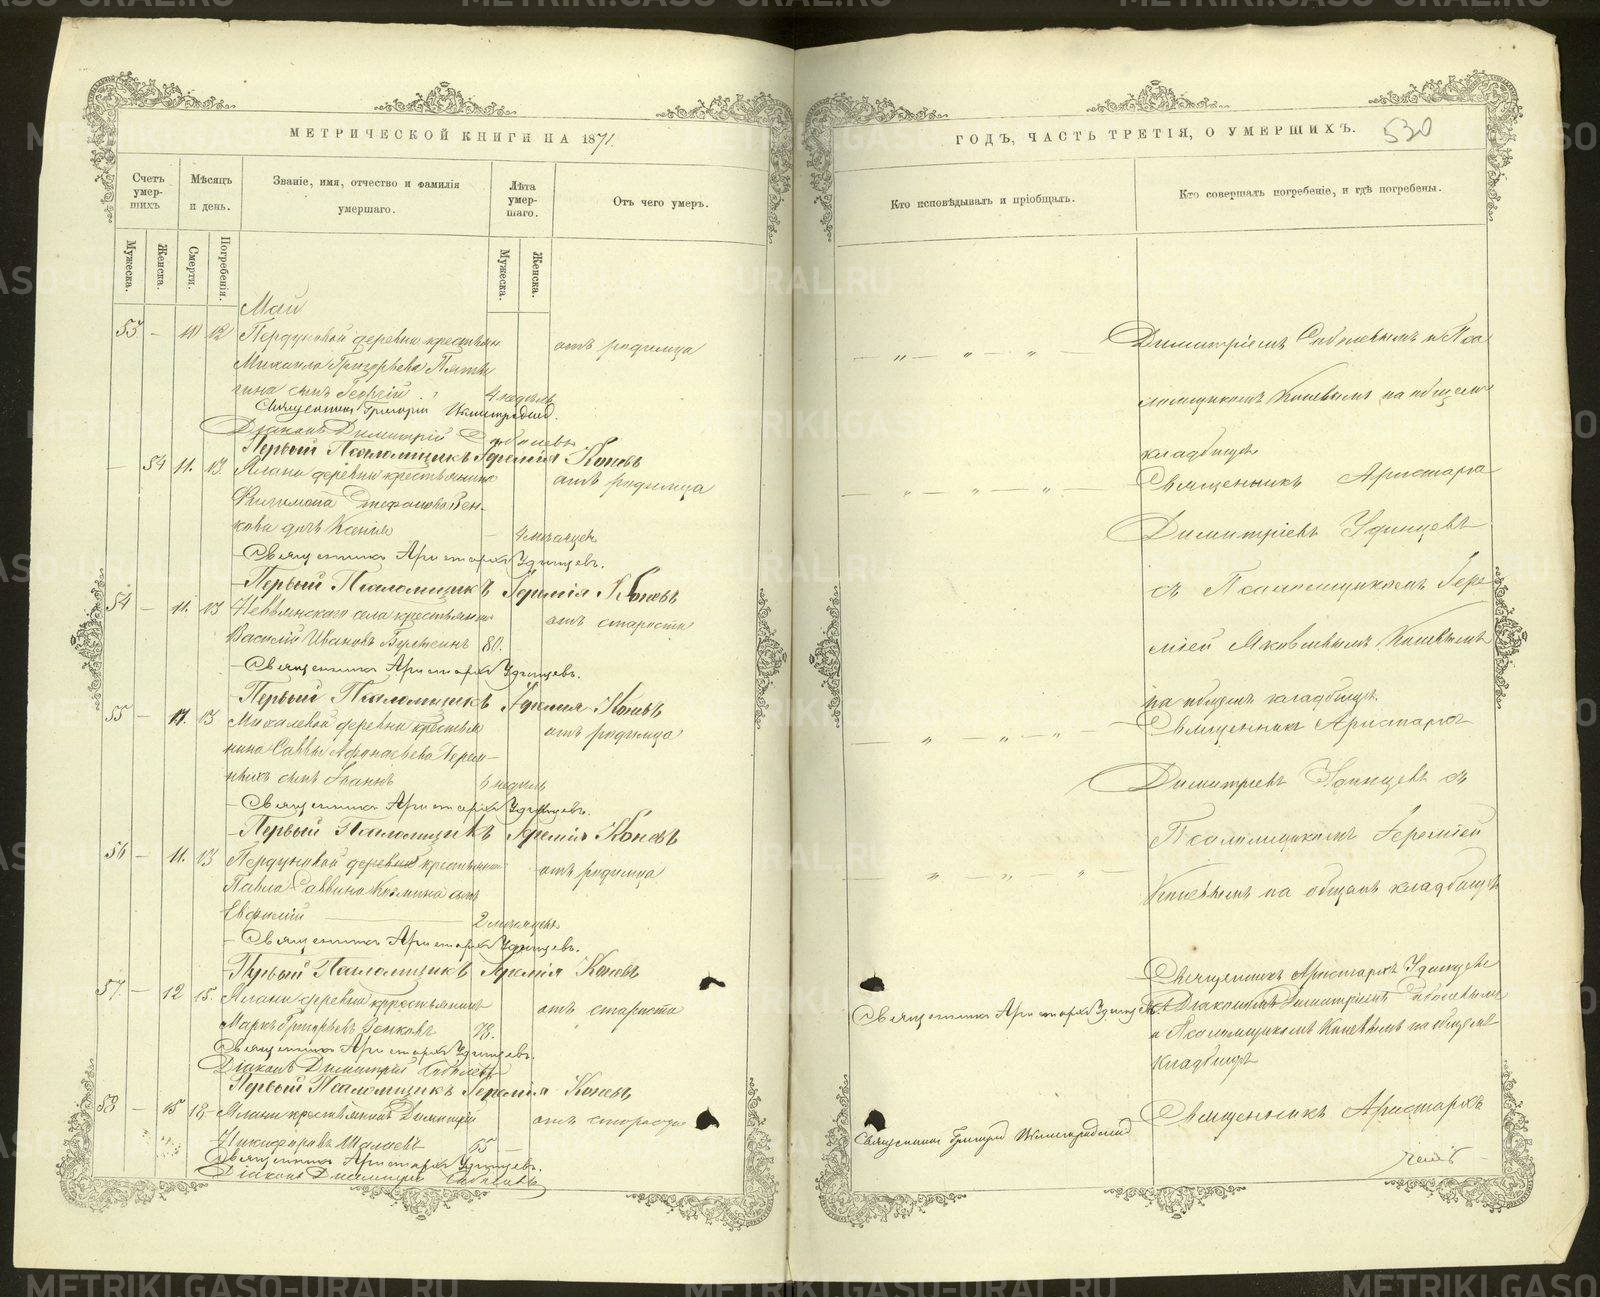 МЕТРИЧЕСКОЙ КНИГИ НА 1871.
Счетъ умер-шихъ
Мѣсяцъ и день.
Званіе, имя, отчество и фамилія умершаго.
Лѣта умер-шаго.
Отъ чего умеръ.
Мужеска.
Женска.
Смерти.
Погребенія.
Мужеска.
Женска.
Май
53 — 10 12 Пердуновой деревни крестьян
отъ родимца
Михаила Григорьева
гина сынъ Георгій 4 недѣль
Священникъ Григорій
Діаконъ Димитрій Соболевъ
Первый Псаломщикъ Іеремія Коневъ
— 54 11. 13. Алани деревни крестьянина
отъ родимца
Филимона Стефанова Зен-
кова дочь Ксенія — 4 месяцев
Священникъ Аристархъ Удинцевъ.
Первый Псаломщикъ Іеремія Коневъ
54 — 11. 13 Невьянскаго села крестьянинъ
отъ старости
Василій Ивановъ 80.
Священникъ Аристархъ Удинцевъ.
Первый Псаломщикъ Іеремія Коневъ
55 — 11. 13 Михалевой деревни крестья
отъ родимца
нина Саввы Афанасьева
сынъ Іоаннъ 6 недѣль
Священникъ Аристархъ Удинцевъ.
Первый Псаломщикъ Іеремія Коневъ
56 — 11. 13 Пердуновой деревни крестьянина
отъ родимца
Павла Саввина Козмина сынъ
Евфимій 2 месяцевъ
Священникъ Аристархъ Удинцевъ.
Первый Псаломщикъ Іеремія Коневъ
57. — 12 15. Алани деревни крестьянинъ
отъ старости
Маркъ Григорьевъ Зенковъ 78.
Священникъ Аристархъ Удинцевъ.
Діаконъ Димитрій Соболевъ
Первый Псаломщикъ Іеремія Коневъ
58 — 15 18 Алани крестьянинъ Димитрій
отъ старости
Никифоровъ 65 —
Священникъ Аристархъ Удинцевъ.
Діаконъ Димитрій Соболевъ
ГОДЪ, ЧАСТЬ ТРЕТІЯ, О УМЕРШИХЪ.
530
Кто исповѣдывалъ и пріобщалъ.
Кто совершалъ погребеніе, и гдѣ погребены.
Димитріемъ Соболевымъ и Пса
ломщикомъ Коневымъ на общемъ
кладбище
Священникъ Аристархъ
Димитріевъ Удинцевъ
съ Псаломщикомъ Іере
міей Яковлевымъ Коневымъ
на общемъ кладбище.
Священникъ Аристархъ
Димитріевъ Удинцевъ съ
Псаломщикомъ Іереміей
Коневымъ на общемъ кладбище
Священникъ Аристархъ Удинцевъ
Священникъ Аристархъ Удинцевъ
съ Діакономъ Димитріемъ Соболевымъ
и Псаломщикомъ Коневымъ на общемъ
кладбище
Священникъ Аристархъ
Священникъ Григорій
METRIKI.GASO-URAL.RU